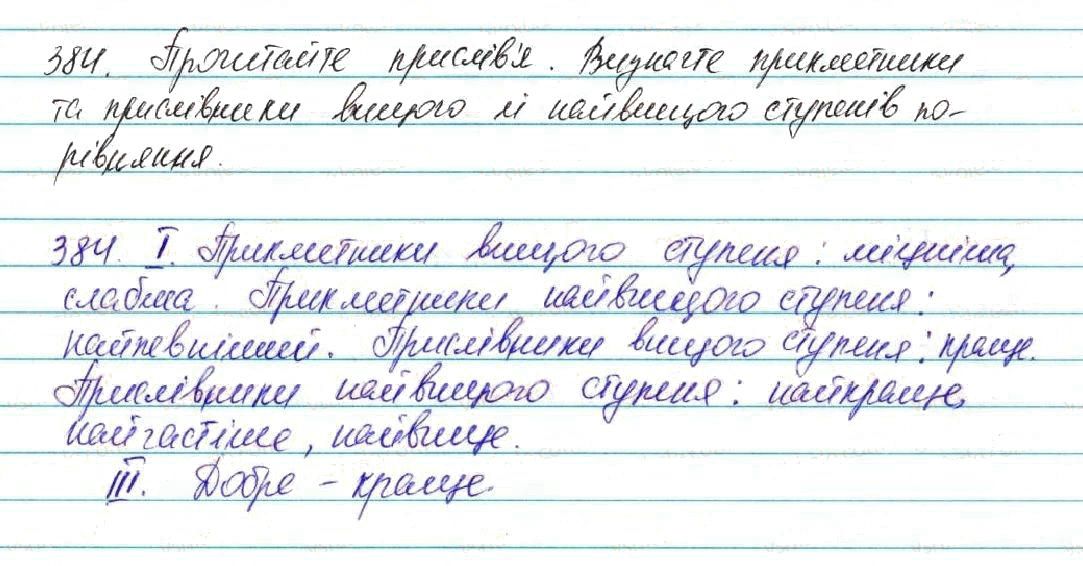 384. Прочитайте прислів'я. Визначте прикметники
та прислівники вищого й найвищого ступенів по-
рівняння.
384. I. Прикметники вищого ступеня: міцніша,
слабша. Прикметники найвищого ступеня:
найпевніший. Прислівники вищого ступеня: краще.
Прислівники найвищого ступеня: найкраще,
найчастіше, найвище.
III. Добре – краще.